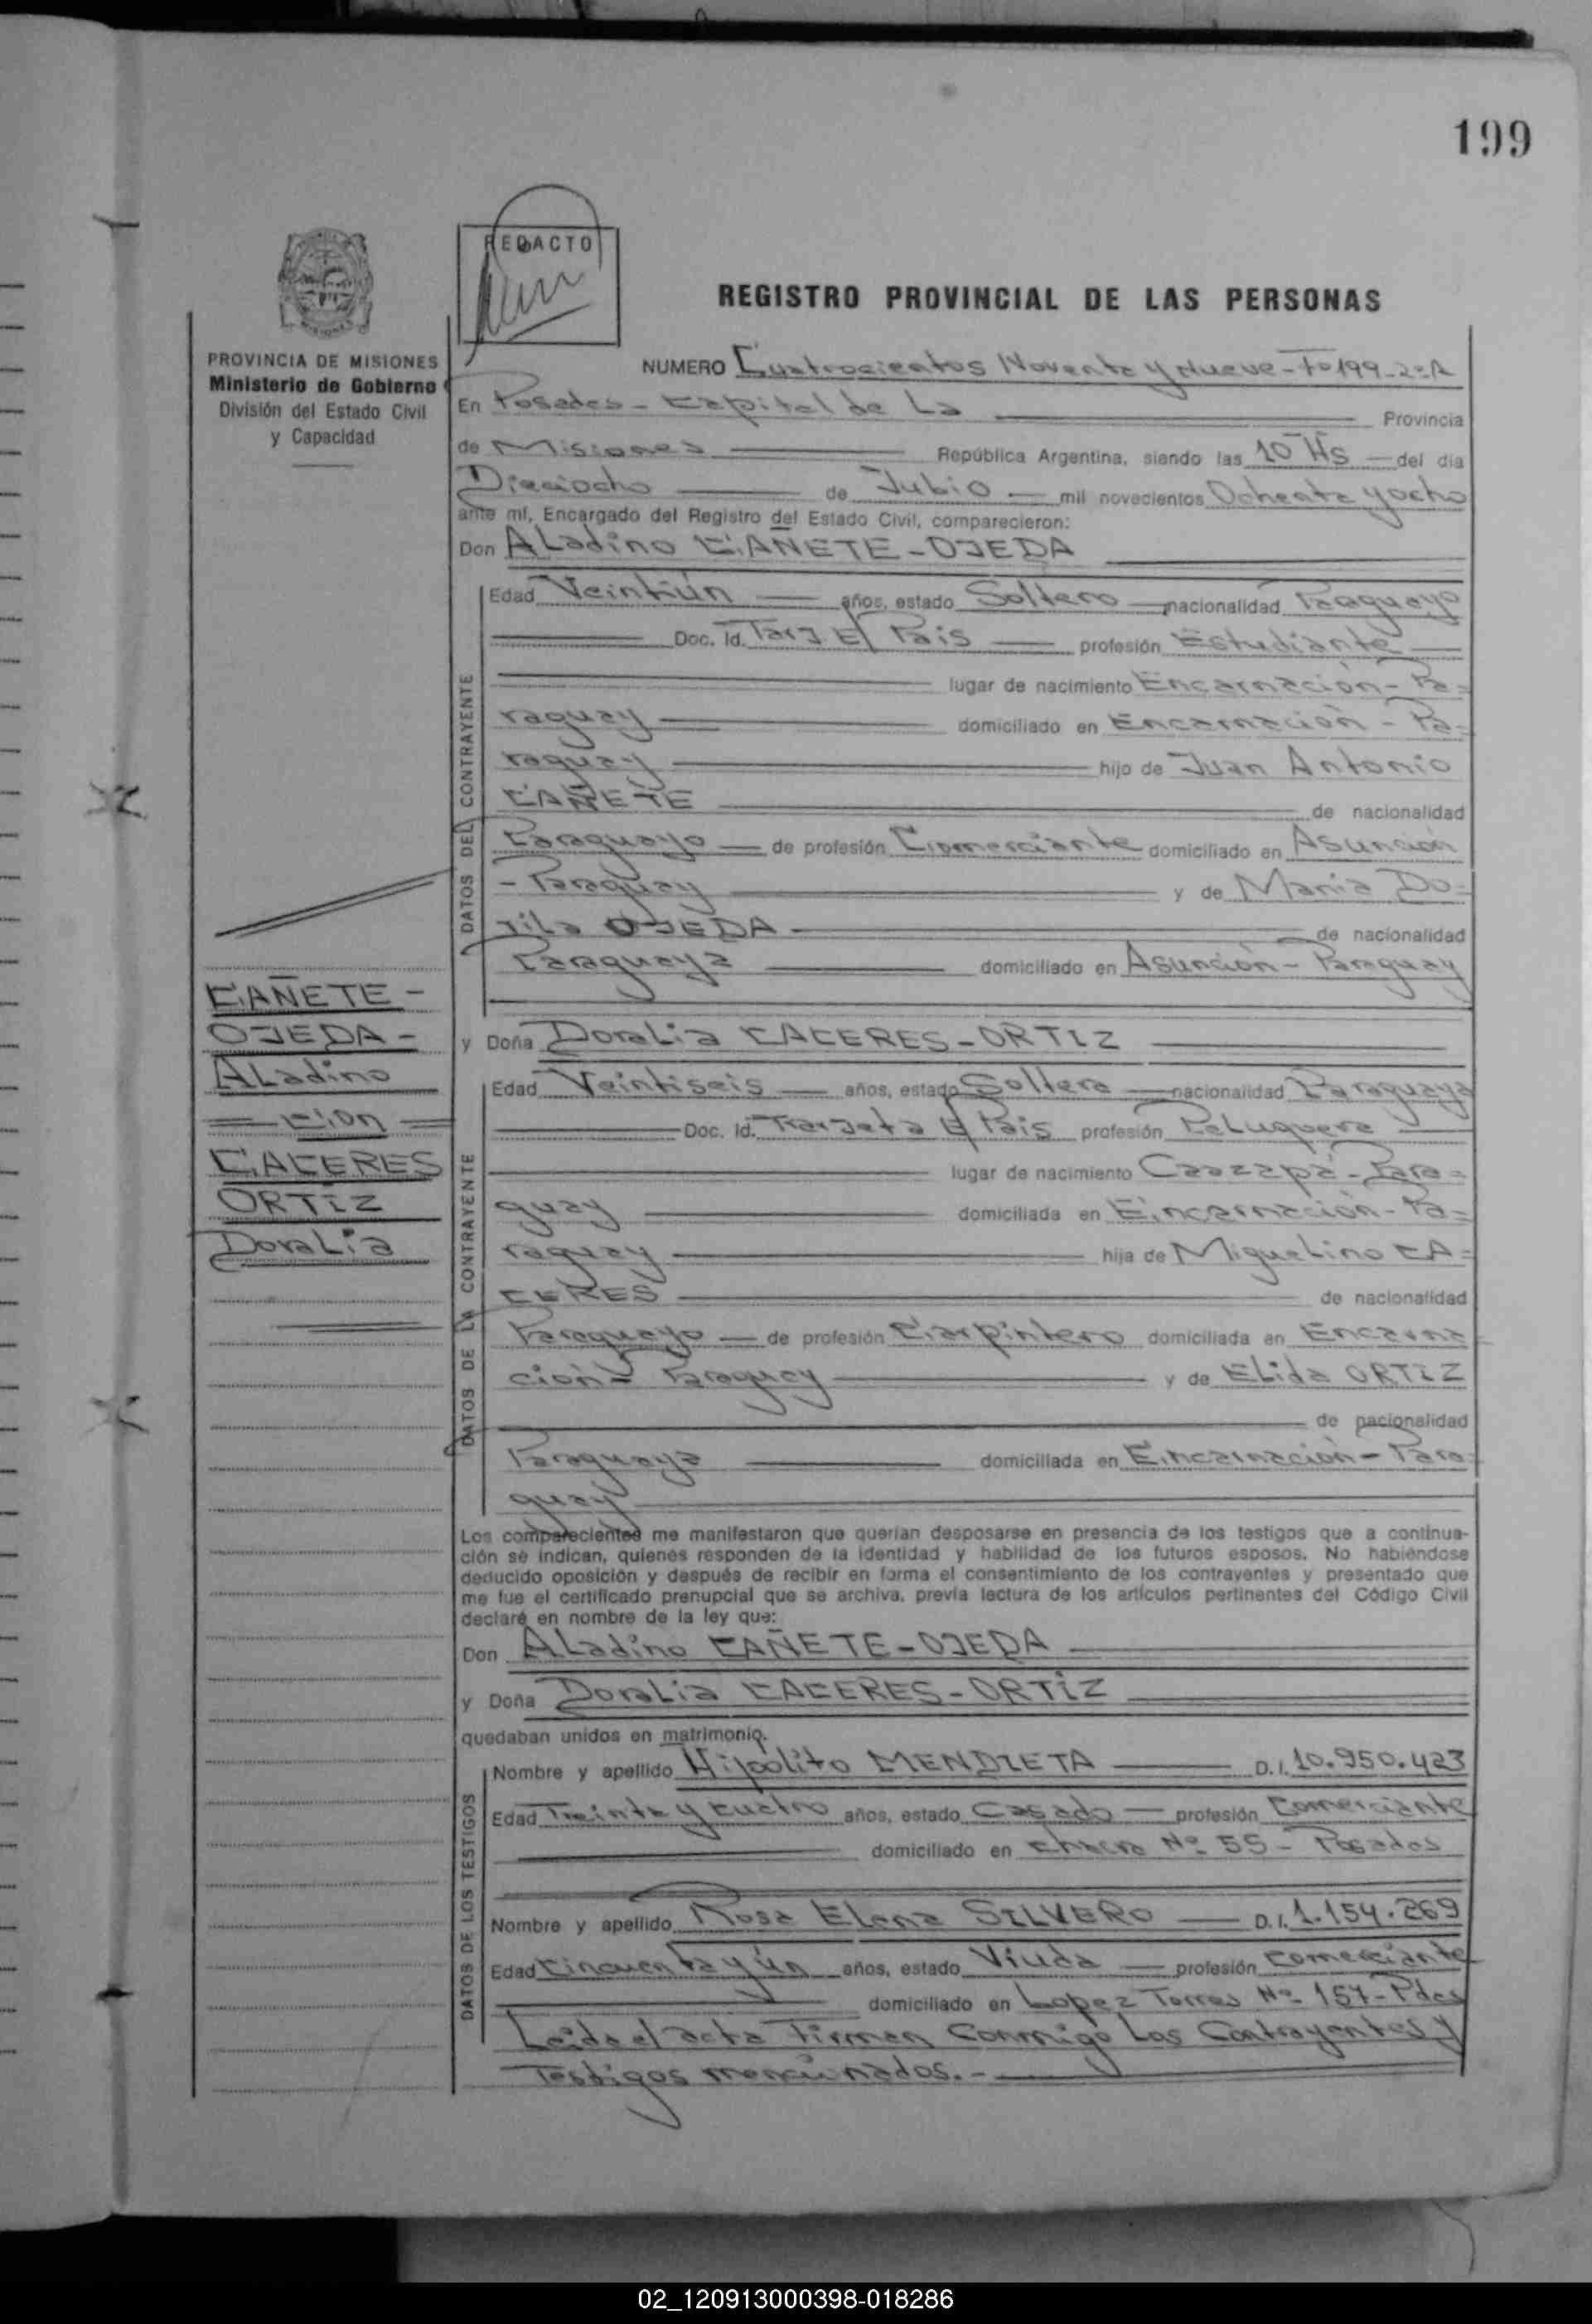 199
REDACTO
MISIONES
PROVINCIA DE MISIONES
Ministerio de Gobierno
División del Estado Civil
y Capacidad
CAÑETE -
OJEDA -
ALadino
= Con =
CACERES
ORTIZ
DoraLia
REGISTRO PROVINCIAL DE LAS PERSONAS
NUMERO Cuatrocientos Noventa y Nueve - Fº 199 - 2º A
En Posadas - Capital de La Provincia
de Misiones República Argentina, siendo las 10 Hs del día
Dieciocho de mil novecientos Ochenta y ocho
ante mí, Encargado del Registro del Estado Civil, comparecieron:
Don ALadino CAÑETE - OJEDA
DATOS DEL CONTRAYENTE
Edad Veintiún años, estado Soltero nacionalidad Paraguayo
Doc. Id. Tarj E/ País profesión Estudiante
lugar de nacimiento Encarnación - Pa=
raguay domiciliado en Encarnación - Pa=
raguay hijo de Juan Antonio
CAÑETE de nacionalidad
Paraguayo de profesión Comerciante domiciliado en Asunción
- Paraguay y de María Do=
jila OJEDA de nacionalidad
Paraguaya domiciliado en Asunción - Paraguay
y Doña DoraLia CACERES - ORTIZ
DATOS DE LA CONTRAYENTE
Edad Veintiseis años, estado Soltera nacionalidad Paraguaya
Doc. Id. Tarjeta E/ País profesión PeLuquera
lugar de nacimiento Caazapá - Para=
guay domiciliada en Encarnación - Pa=
raguay hija de MigueLino CA=
CERES de nacionalidad
Paraguayo de profesión Carpintero domiciliada en Encarna
ción - Paraguay y de ELida ORTIZ
de nacionalidad
Paraguaya domiciliada en Encarnación - Para=
guay
Los comparecientes me manifestaron que querían desposarse en presencia de los testigos que a continua-
ción se indican, quienes responden de la identidad y habilidad de los futuros esposos. No habiéndose
deducido oposición y después de recibir en forma el consentimiento de los contrayentes y presentado que
me fue el certificado prenupcial que se archiva, previa lectura de los artículos pertinentes del Código Civil
declaré en nombre de la ley que:
Don ALadino CAÑETE - OJEDA
y Doña DoraLia CACERES - ORTIZ
quedaban unidos en matrimonio.
DATOS DE LOS TESTIGOS
Nombre y apellido Hipólito MENDIETA D.I. 10.950.423
Edad Treinta y cuatro años, estado Casado profesión Comerciante
domiciliado en Chacra Nº 55 - Posadas
Nombre y apellido Rosa ELena SILVERO D.I. 1.154.269
Edad Cincuenta y ún años, estado Viuda profesión Comerciante
domiciliado en Lopez Torres Nº 157 - Pdas
Leída el acta Firman Conmigo Los Contrayentes y
Testigos mencionados. -
02_120913000398-018286